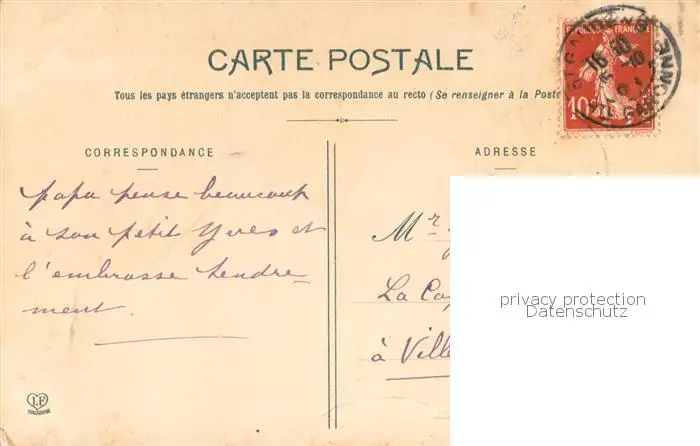 CARTE POSTALE
RÉPUBLIQUE FRANÇAISE
10
Tous les pays étrangers n'acceptent pas la correspondance au recto (Se renseigner à la Poste
CORRESPONDANCE
papa pense beaucoup
à son petit Yves et
l'embrasse tendre-
ment.
LF
TOULOUSE
ADRESSE
Mr
La
à Ville
privacy protection
Datenschutz